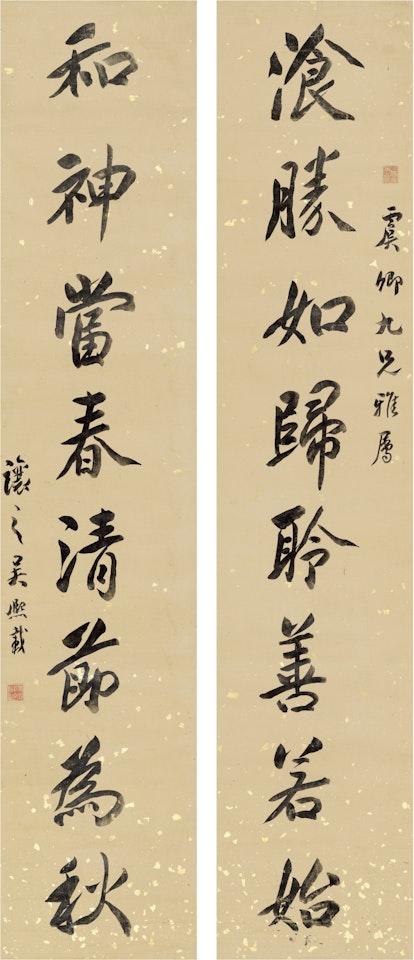 虞卿九兄雅屬
湌勝如歸聆善若始
和神當春清節為秋
讓之吳熙載